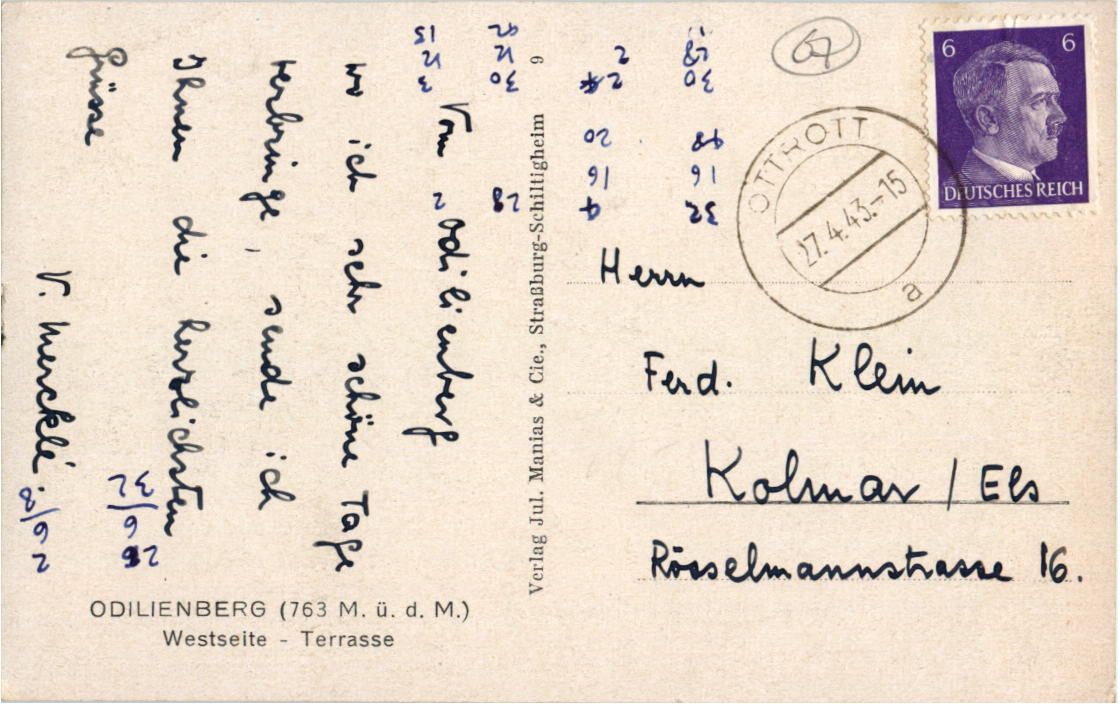 Vom Odilienberg
wo ich sehr schöne Tage
verbringe, sende ich
Ihnen die herzlichsten
Grüsse
V. Mercklé.
ODILIENBERG (763 M. ü. d. M.)
Westseite - Terrasse
Verlag Jul. Manias & Cie., Straßburg-Schiltigheim 9
67
6 6
DEUTSCHES REICH
OTTROTT
27.4.43.-15
a
Herrn
Ferd. Klein
Kolmar / Els
Rösselmannstrasse 16.
32 28 2
16 16
20
30 30 3
28 2 12 12
92 15
26/8
32